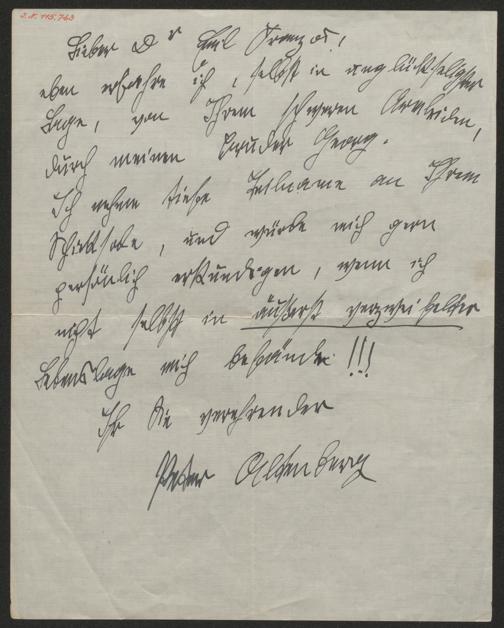 I.N. 115.763
Lieber Dr Emil Franzos,
eben erfahre ich, selbst in unglückseligster
Lage, von Ihrem schweren Armleiden,
durch meinen Bruder Georg.
Ich nehme tiefste Teilname an Ihrem
Schicksale, und würde mich gern
persönlich erkundigen, wenn ich
nicht selbst in äußerst verzweifelter
Lebenslage mich befände!!!
Ihr Sie verehrender
Peter Altenberg